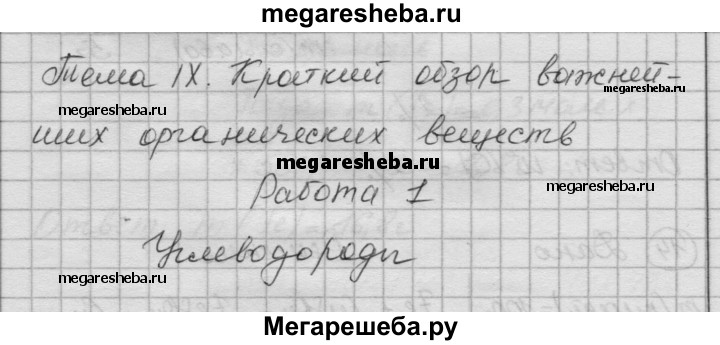 megaresheba.ru
Тема IX. Краткий обзор важней-
megaresheba.ru
ших органических веществ
megaresheba.ru
megaresheba.ru
Работа 1
Углеводороды
megaresheba.ru
Мегарешеба.ру